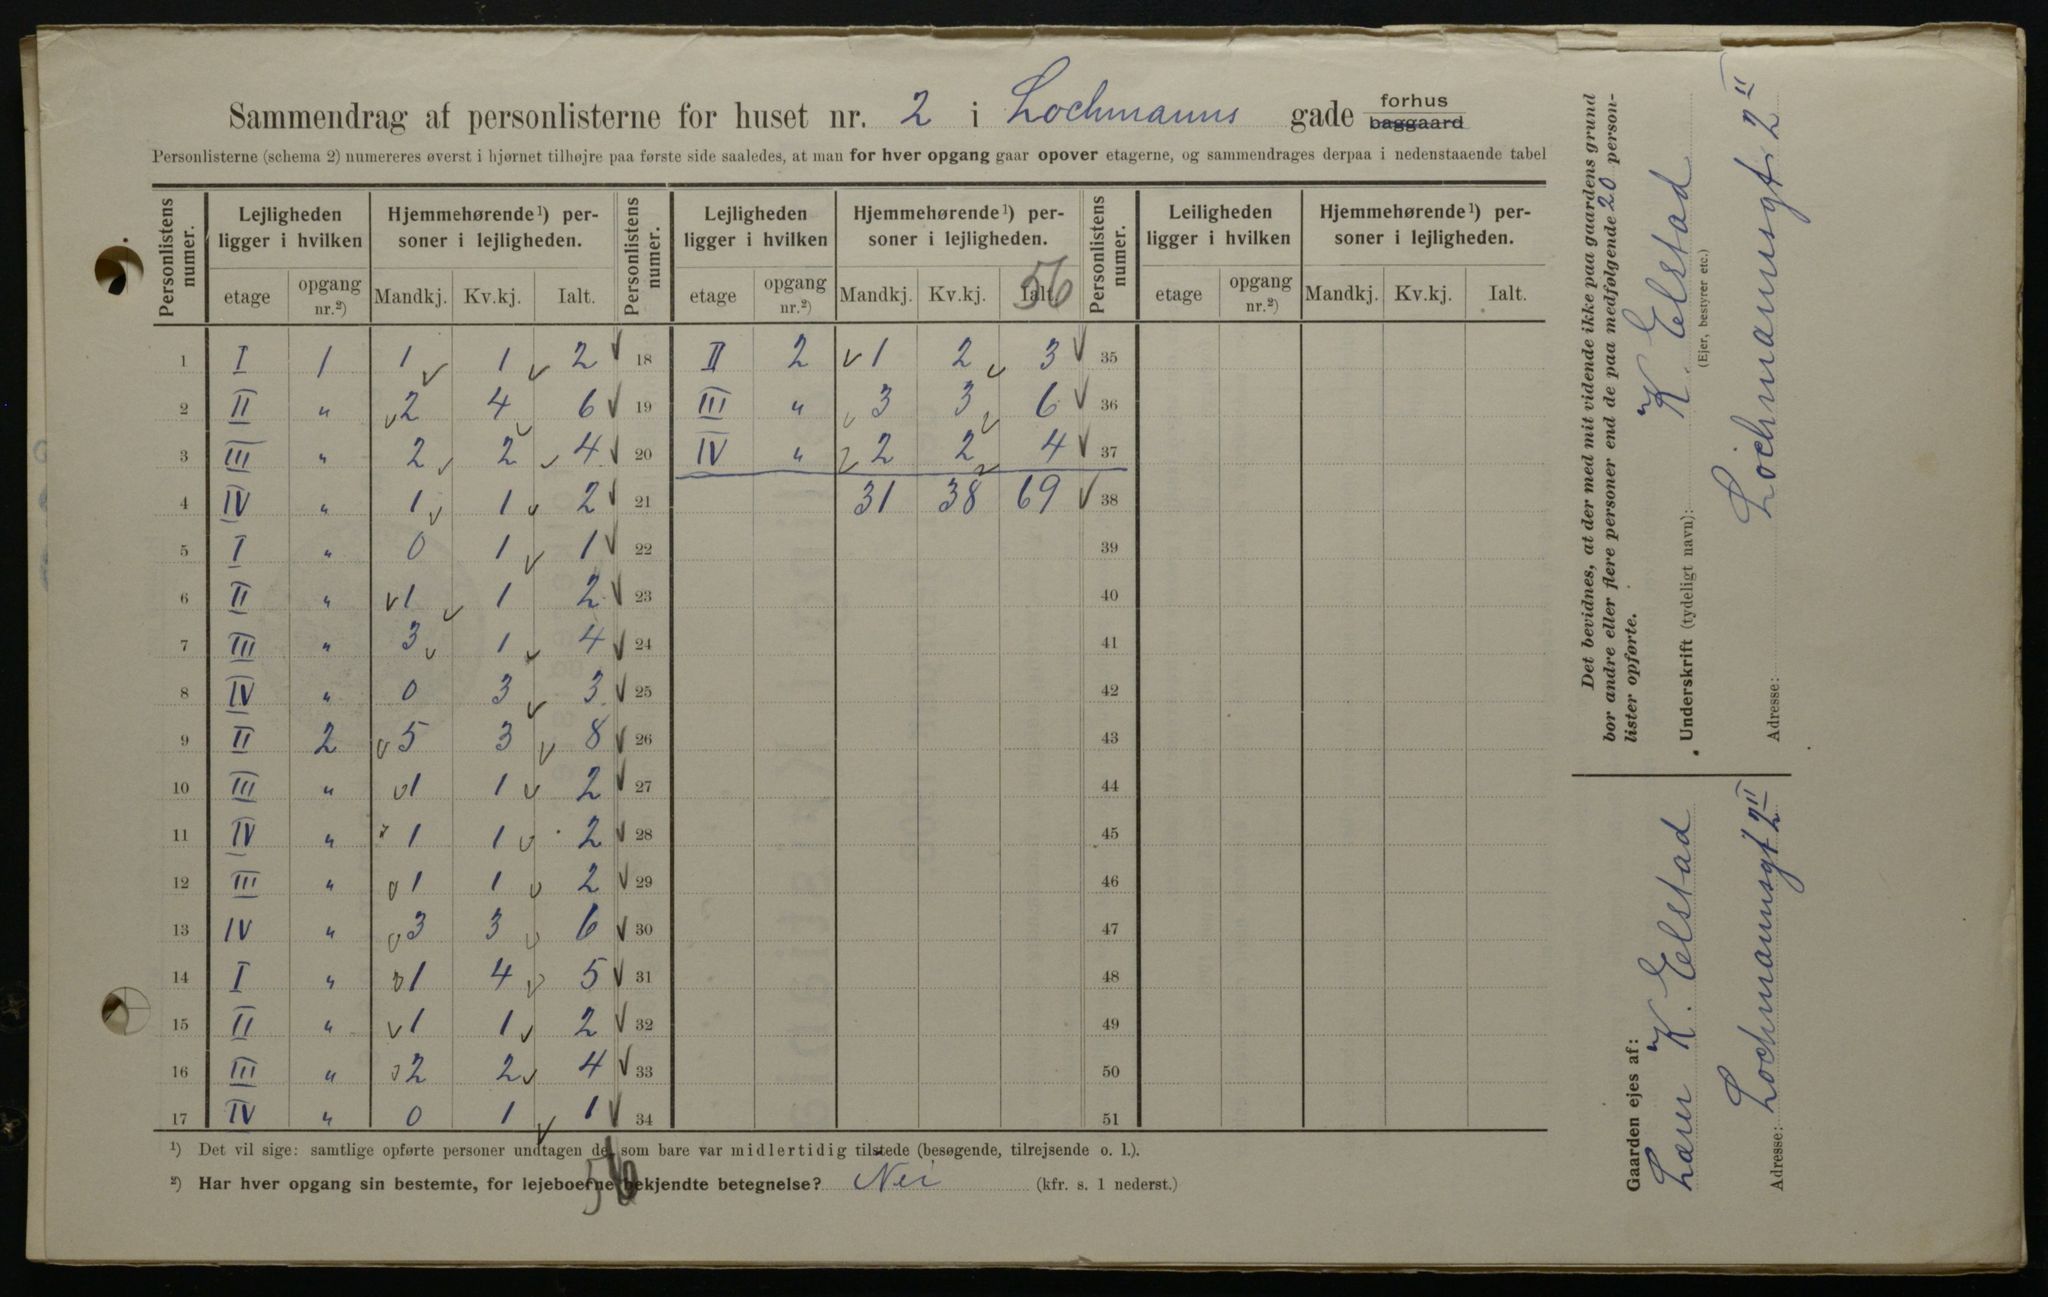 Sammendrag af personlisterne for huset nr. 2 i Lochmanns gade forhus baggaard
Personlisterne (schema 2) numereres øverst i hjørnet tilhøjre paa første side saaledes, at man for hver opgang gaar opover etagerne, og sammendrages derpaa i nedenstaaende tabel
Personlistens numer. Lejligheden ligger i hvilken Hjemmehørende ¹) personer i lejligheden. Personlistens numer. Lejligheden ligger i hvilken Hjemmehørende ¹) personer i lejligheden. Personlistens numer. Leiligheden ligger i hvilken Hjemmehørende ¹) personer i lejligheden.
etage opgang nr.²) Mandkj. Kv.kj. Ialt. etage opgang nr.²) Mandkj. Kv.kj. Ialt. 56 etage opgang nr.²) Mandkj. Kv.kj. Ialt.
1 I 1 1 1 2 18 II 2 1 2 3 35
2 II " 2 4 6 19 III " 3 3 6 36
3 III " 2 2 4 20 IV " 2 2 4 37
4 IV " 1 1 2 21 31 38 69 38
5 I " 0 1 1 22 39
6 II " 1 1 2 23 40
7 III " 3 1 4 24 41
8 IV " 0 3 3 25 42
9 II 2 5 3 8 26 43
10 III " 1 1 2 27 44
11 IV " 1 1 2 28 45
12 III " 1 1 2 29 46
13 IV " 3 3 6 30 47
14 I " 1 4 5 31 48
15 II " 1 1 2 32 49
16 III " 2 2 4 33 50
17 IV " 0 1 1 34 51
¹) Det vil sige: samtlige opførte personer undtagen de, som bare var midlertidig tilstede (besøgende, tilrejsende o. l.).
²) Har hver opgang sin bestemte, for lejeboerne bekjendte betegnelse? Nei (kfr. s. 1 nederst.)
56
Det bevidnes, at der med mit vidende ikke paa gaardens grund
bor andre eller flere personer end de paa medfølgende 20 person-
lister opførte.
Underskrift (tydeligt navn): K. Elstad
(Ejer, bestyrer etc.)
Adresse: Lochmannsgt. 2 II
Gaarden ejes af:
K. Elstad
Adresse: Lochmannsgt 2 II